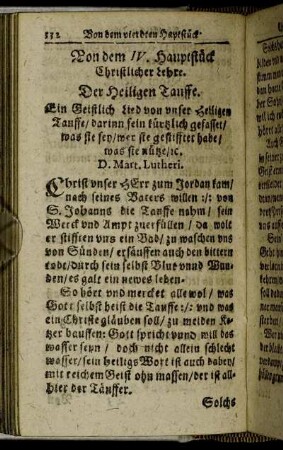 132 Von dem vierdten Hauptstück
Von dem IV. Hauptstück
Christlicher Lehre.
Der Heiligen Tauffe.
Ein Geistlich Lied von unser Heiligen
Tauffe/ darinn fein kürtzlich gefasset/
was sie sey/ wer sie gestifftet habe/
was sie nütze/ ꝛc.
D. Mart. Lutheri.
Christ unser HErr zum Jordan kam/
nach seines Vaters willen :/: von
S. Johanns die Tauffe nahm/ sein
Werck und Ampt zuerfüllen/ Da wolt
er stifften uns ein Bad/ zu waschen uns
von Sünden/ ersäuffen auch den bittern
todt/ durch sein selbst Blut unnd Wun-
den/ es galt ein newes leben.
So hört und mercket alle wol/ was
Gott selbst heist die Tauffe :/: und was
ein Christe gläuben soll/ zu meiden Ke-
tzer hauffen: Gott spricht unnd will das
wasser seyn/ doch nicht allein schlecht
wasser/ sein heiligs Wort ist auch dabey/
mit reichem Geist ohn massen/ der ist all-
hier der Täuffer.
Solchs